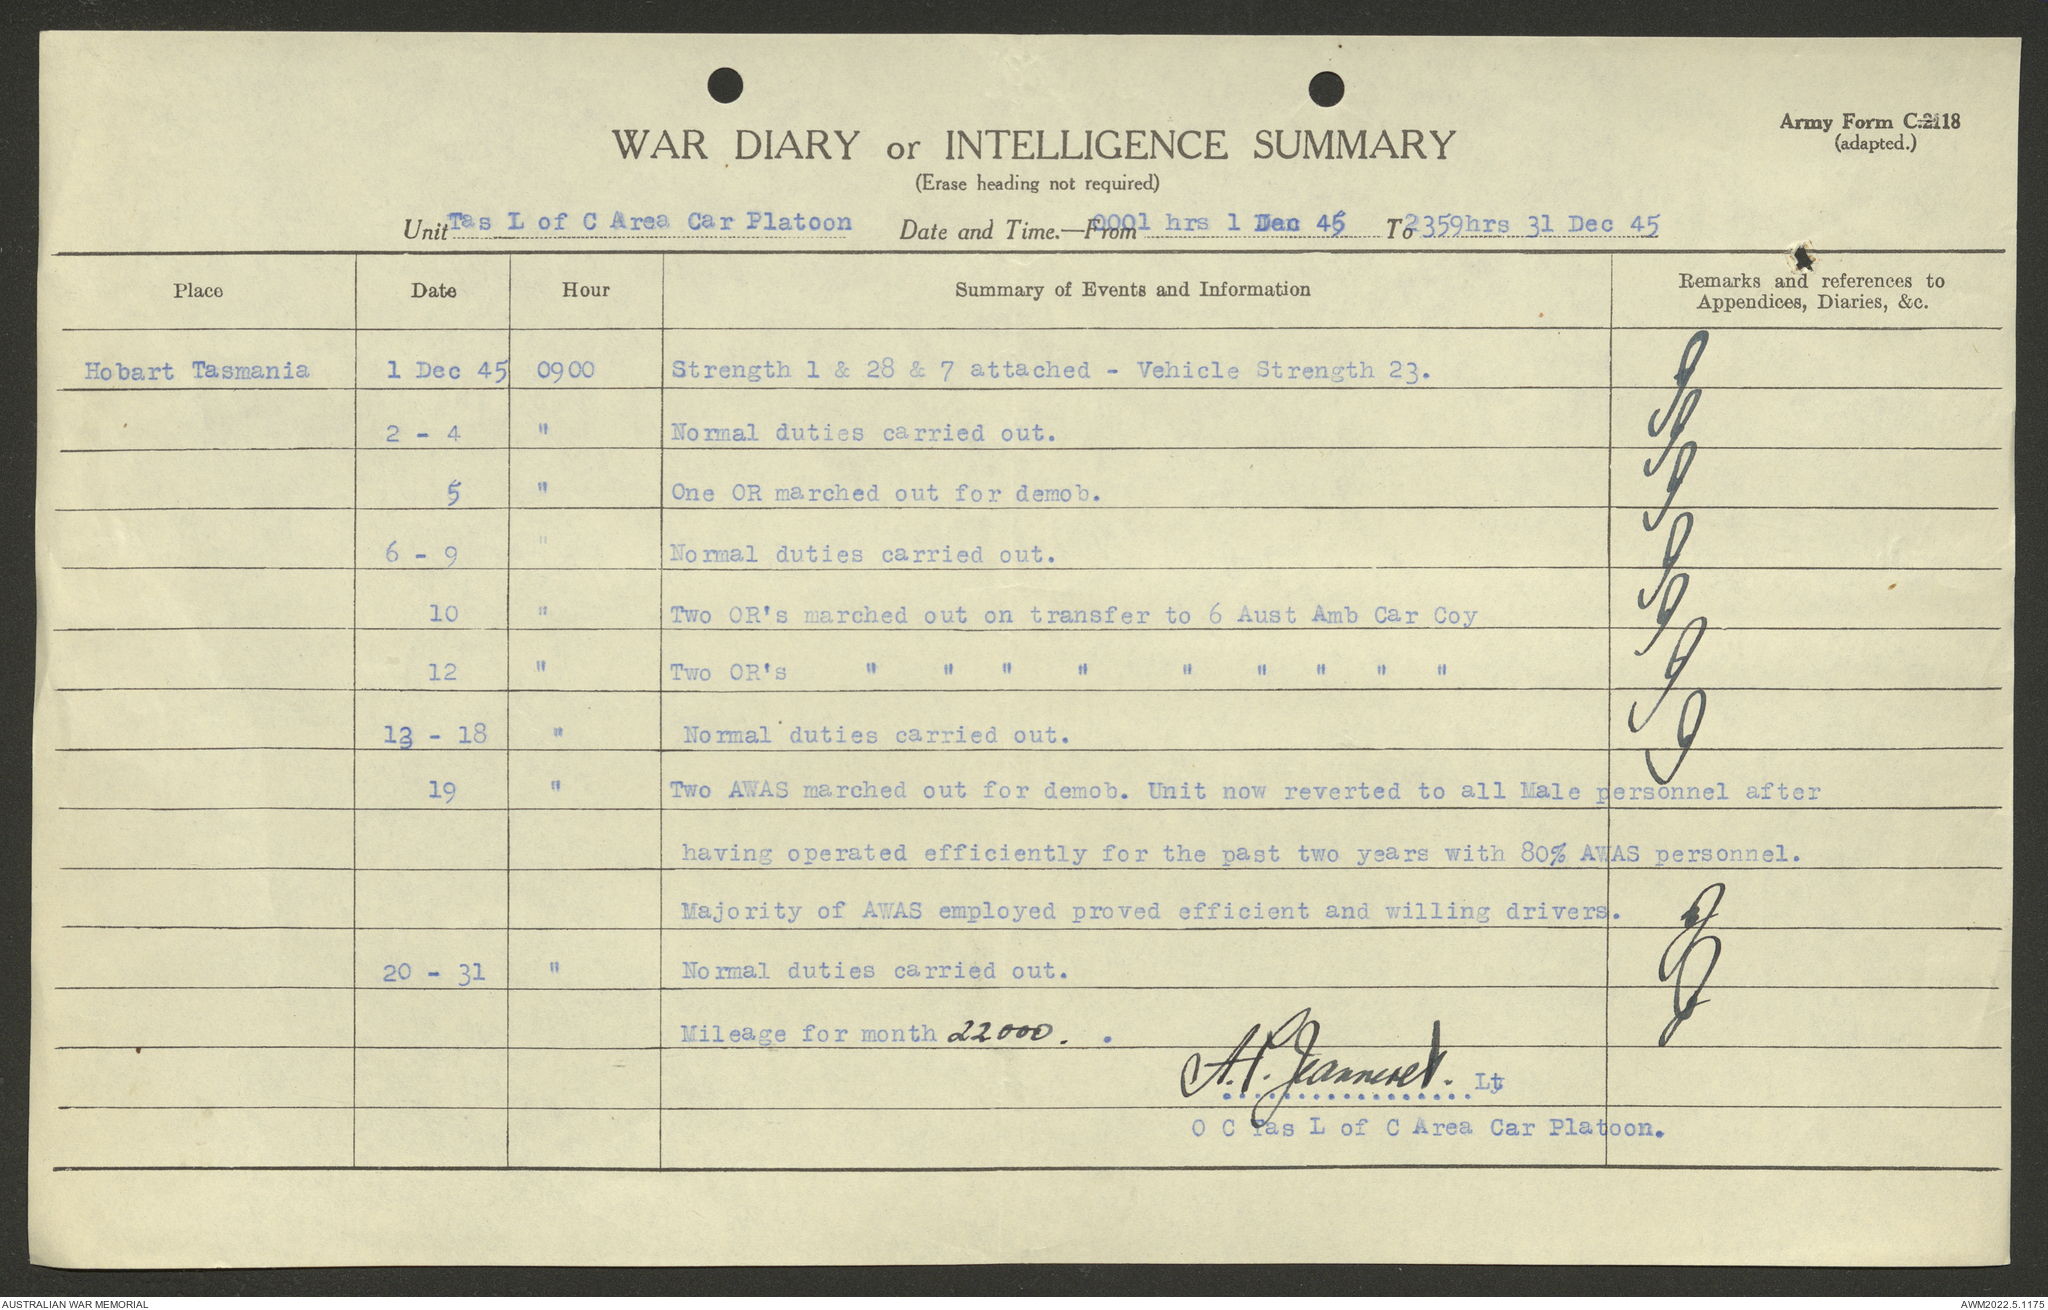 Army Form C.2118
(adapted.)
WAR DIARY or INTELLIGENCE SUMMARY
(Erase heading not required)
Unit Tas L of C Area Car Platoon Date and Time.—From 0001 hrs 1 Dec 45 To 2359hrs 31 Dec 45
Place Date Hour Summary of Events and Information Remarks and references to
Appendices, Diaries, &c.
Hobart Tasmania 1 Dec 45 0900 Strength 1 & 28 & 7 attached - Vehicle Strength 23.
2 - 4 " Normal duties carried out.
5 " One OR marched out for demob.
6 - 9 " Normal duties carried out.
10 " Two OR's marched out on transfer to 6 Aust Amb Car Coy
12 " Two OR's " " " " " " " " "
13 - 18 " Normal duties carried out.
19 " Two AWAS marched out for demob. Unit now reverted to all Male personnel after
having operated efficiently for the past two years with 80% AWAS personnel.
Majority of AWAS employed proved efficient and willing drivers.
20 - 31 " Normal duties carried out.
Mileage for month 22000. .
A.P. Jeanneret. Lt
O C Tas L of C Area Car Platoon.
AUSTRALIAN WAR MEMORIAL AWM2022.5.1175